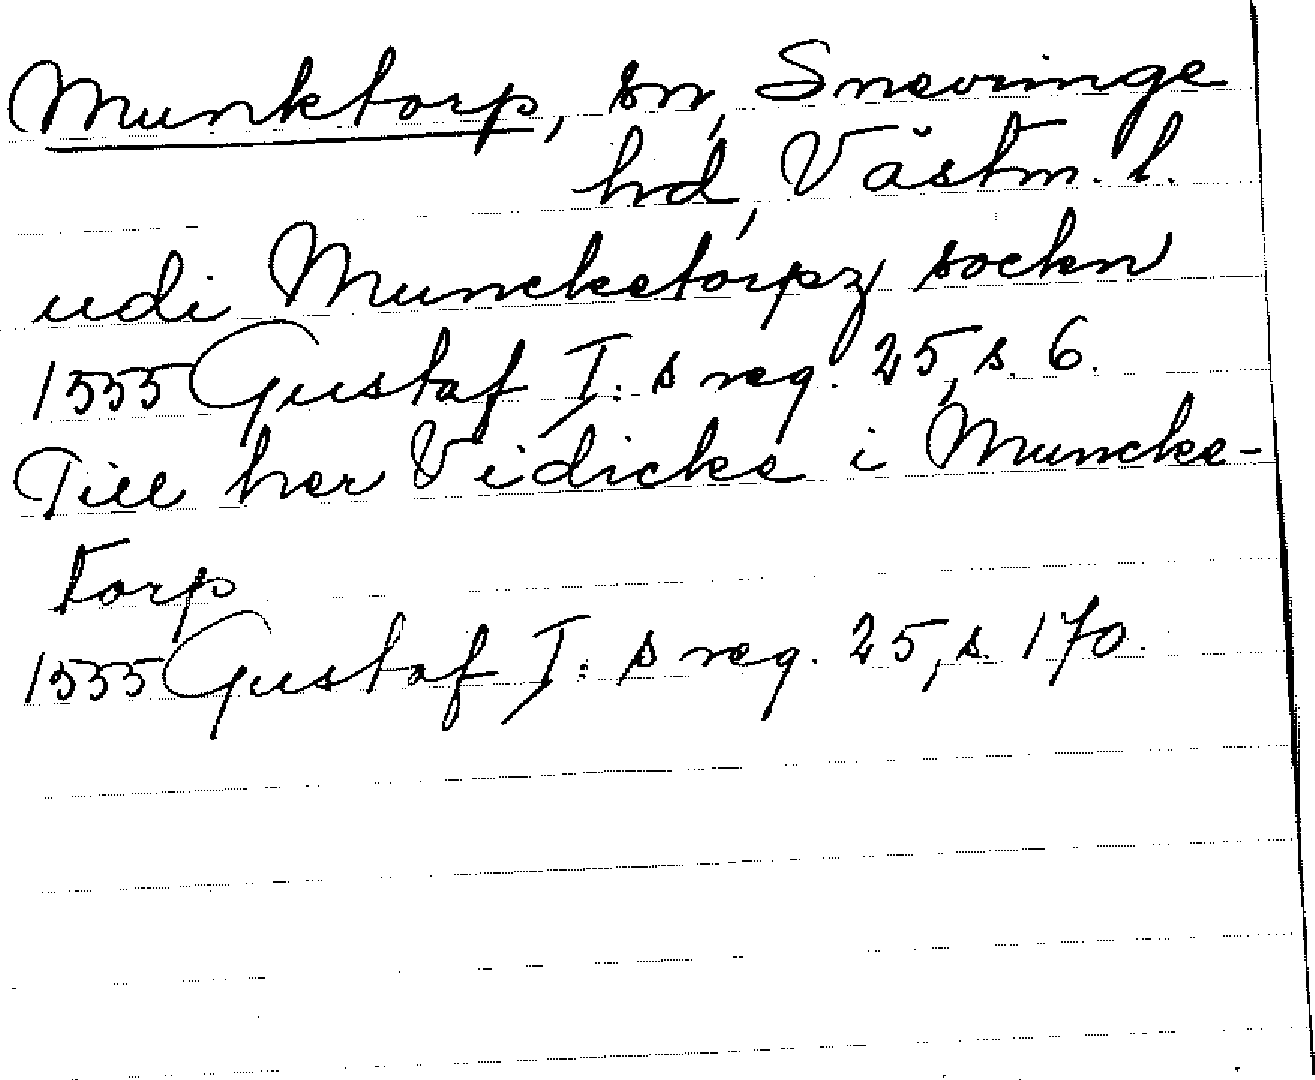 Munktorp, sn, Snevringe
hd, Västm. l.
udi Muncketorpz sockn
1555 Gustaf I:s reg. 25, s. 6.
Till her Vidicke i Muncke-
torp
1555 Gustaf I:s reg. 25, s. 170.